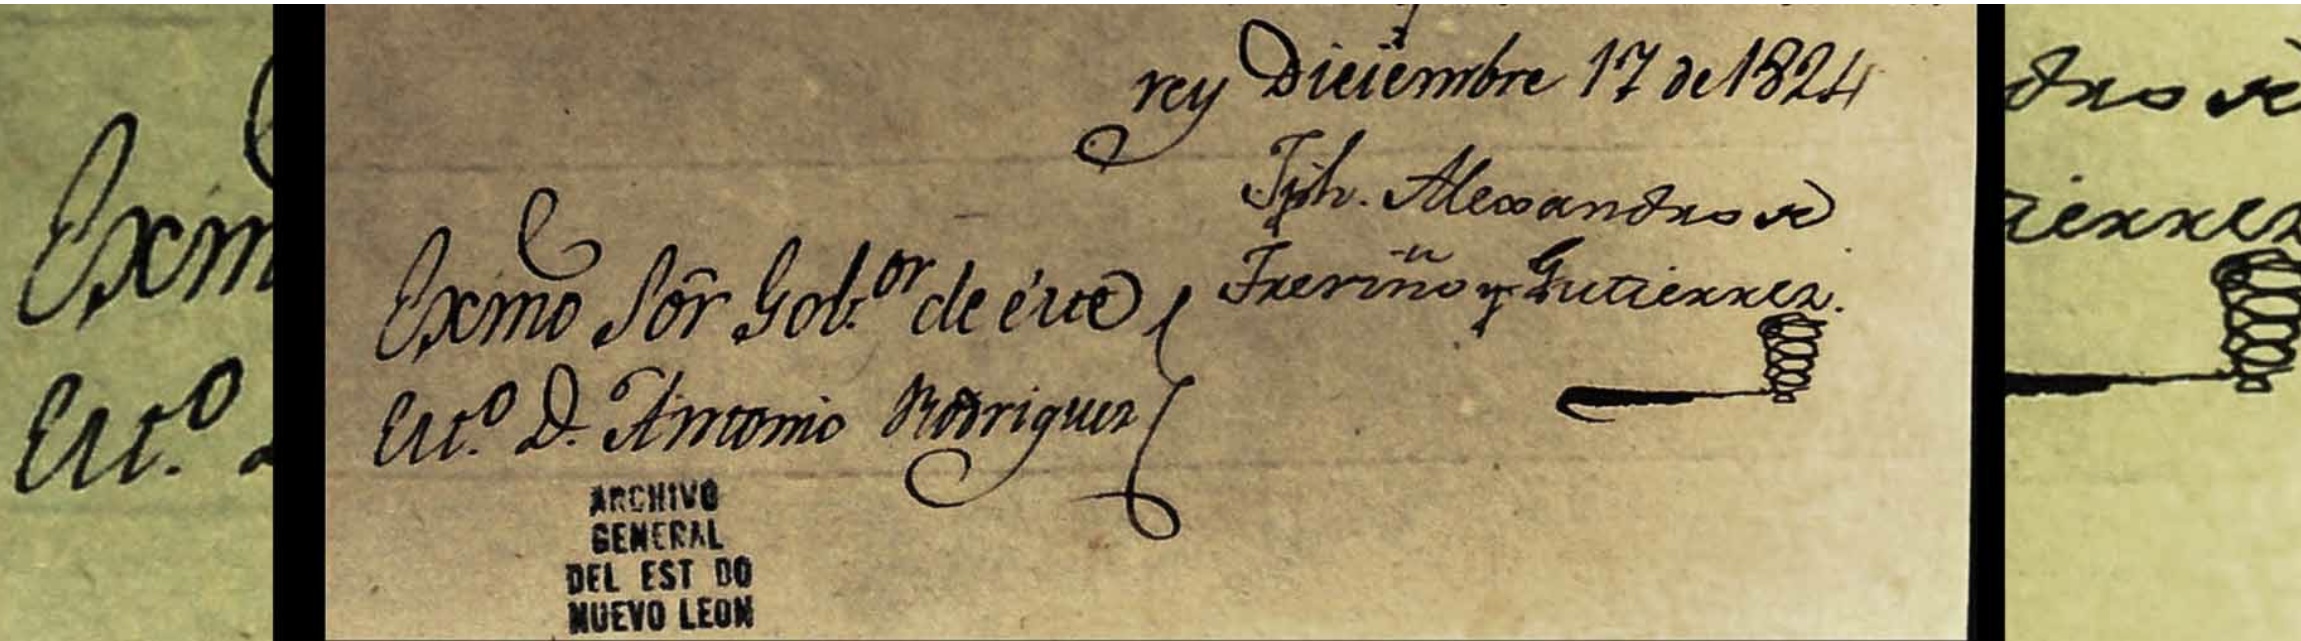 rey Diciembre 17 de 1824
Jph. Alexandro de
Treviño y Gutierrez.
Exmo Sôr Gob.or de éste
Est.o D. Antonio Rodriguez
ARCHIVO
GENERAL
DEL EST DO
NUEVO LEON
Exm
Est.o
dro de
tierrez